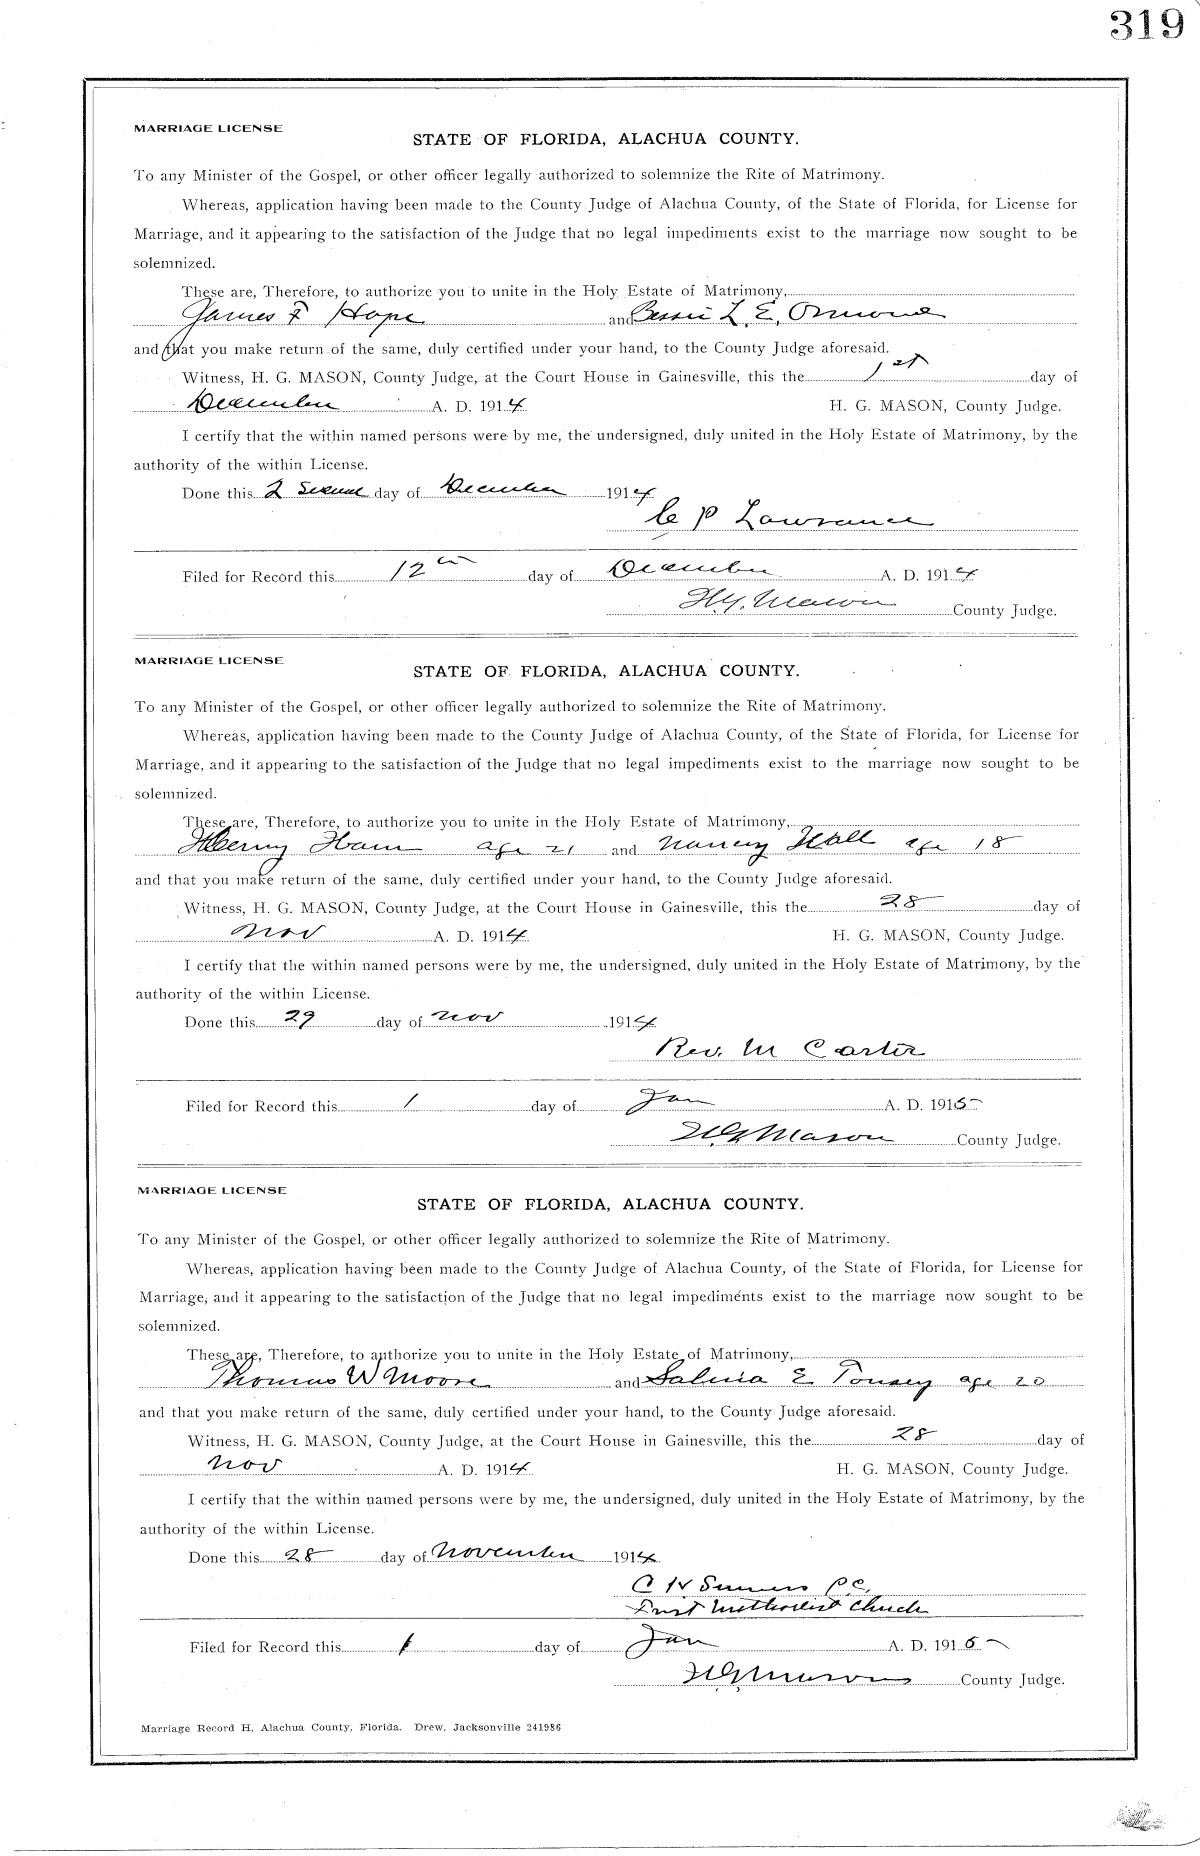 319
MARRIAGE LICENSE
STATE OF FLORIDA, ALACHUA COUNTY.
To any Minister of the Gospel, or other officer legally authorized to solemnize the Rite of Matrimony.
Whereas, application having been made to the County Judge of Alachua County, of the State of Florida, for License for
Marriage, and it appearing to the satisfaction of the Judge that no legal impediments exist to the marriage now sought to be
solemnized.
These are, Therefore, to authorize you to unite in the Holy Estate of Matrimony,
James F Hope and Bessie L. E. Ormond
and that you make return of the same, duly certified under your hand, to the County Judge aforesaid.
Witness, H. G. MASON, County Judge, at the Court House in Gainesville, this the 1st day of
December A. D. 1914 H. G. MASON, County Judge.
I certify that the within named persons were by me, the undersigned, duly united in the Holy Estate of Matrimony, by the
authority of the within License.
Done this 2 Second day of December 1914
C P Lawrance
Filed for Record this 12th day of December A. D. 1914
H.G. Mason County Judge.
MARRIAGE LICENSE
STATE OF FLORIDA, ALACHUA COUNTY.
To any Minister of the Gospel, or other officer legally authorized to solemnize the Rite of Matrimony.
Whereas, application having been made to the County Judge of Alachua County, of the State of Florida, for License for
Marriage, and it appearing to the satisfaction of the Judge that no legal impediments exist to the marriage now sought to be
solemnized.
These are, Therefore, to authorize you to unite in the Holy Estate of Matrimony,
Henry Ham age 21 and Nancy Hall age 18
and that you make return of the same, duly certified under your hand, to the County Judge aforesaid.
Witness, H. G. MASON, County Judge, at the Court House in Gainesville, this the 28 day of
Nov A. D. 1914 H. G. MASON, County Judge.
I certify that the within named persons were by me, the undersigned, duly united in the Holy Estate of Matrimony, by the
authority of the within License.
Done this 29 day of Nov 1914
Rev. M Carter
Filed for Record this 1 day of Jan A. D. 1915
H G Mason County Judge.
MARRIAGE LICENSE
STATE OF FLORIDA, ALACHUA COUNTY.
To any Minister of the Gospel, or other officer legally authorized to solemnize the Rite of Matrimony.
Whereas, application having been made to the County Judge of Alachua County, of the State of Florida, for License for
Marriage, and it appearing to the satisfaction of the Judge that no legal impediments exist to the marriage now sought to be
solemnized.
These are, Therefore, to authorize you to unite in the Holy Estate of Matrimony,
Thomas W Moore and E Tousey age 20
and that you make return of the same, duly certified under your hand, to the County Judge aforesaid.
Witness, H. G. MASON, County Judge, at the Court House in Gainesville, this the 28 day of
Nov A. D. 1914 H. G. MASON, County Judge.
I certify that the within named persons were by me, the undersigned, duly united in the Holy Estate of Matrimony, by the
authority of the within License.
Done this 28 day of November 1914
C H Summers P.C.
First Methodist Church
Filed for Record this 1 day of Jan A. D. 1915
H G Mason County Judge.
Marriage Record H, Alachua County, Florida. Drew, Jacksonville 241986